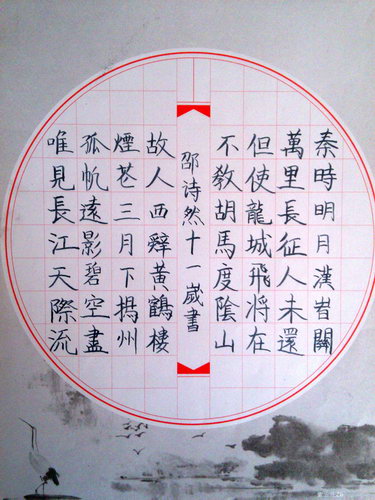 秦時明月漢旹關
萬里長征人未還
但使龍城飛將在
不教胡馬度陰山
邵诗然十一歲書
故人西辤黃鶴樓
煙芲三月下揚州
孤帆遠影碧空盡
唯見長江天際流